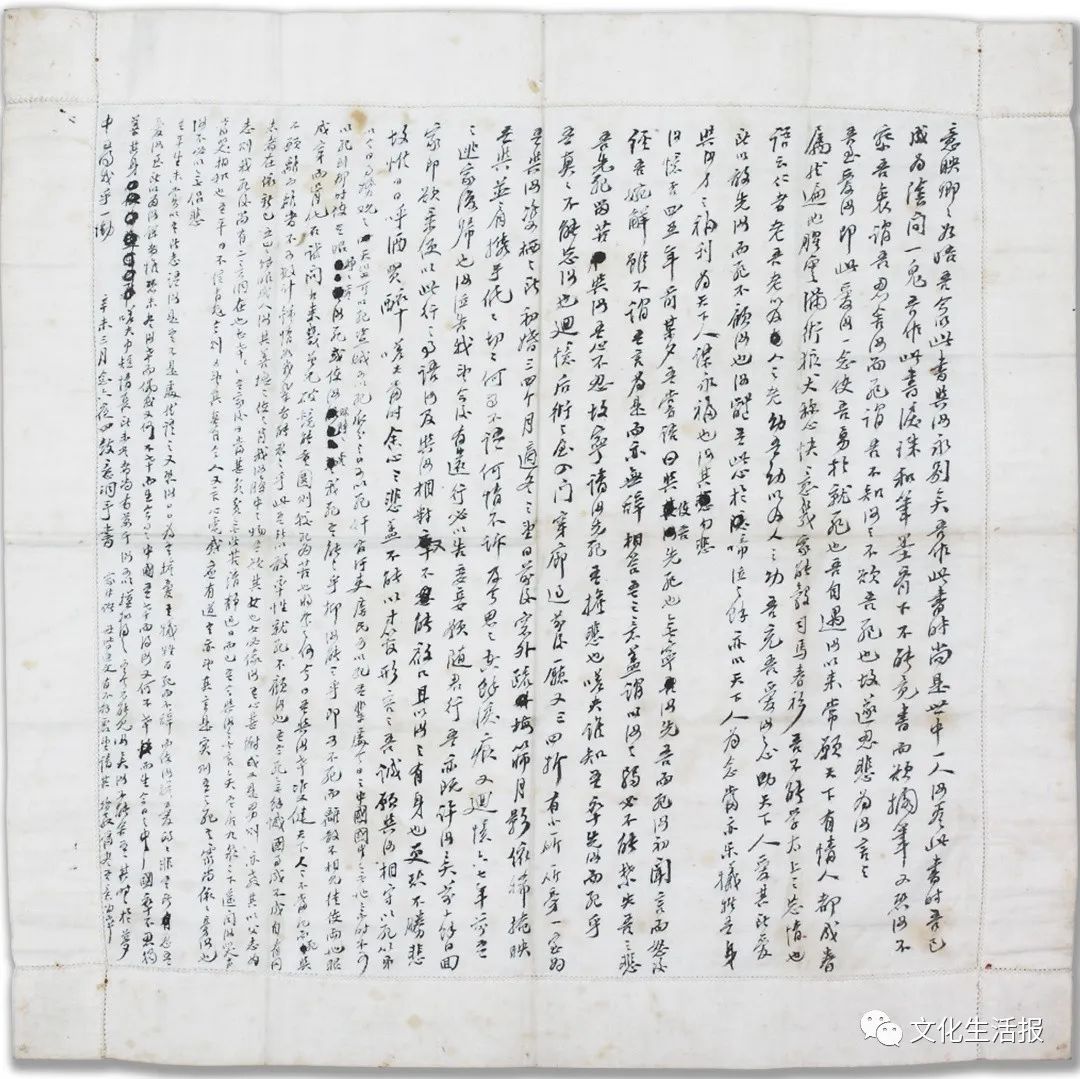 意映卿卿如晤吾今以此書與汝永別矣吾作此書時尚是世中一人汝看此書時吾已
成為陰間一鬼吾作此書淚珠和筆墨齊下不能竟書而欲擱筆又恐汝不
察吾衷謂吾忍舍汝而死謂吾不知汝之不欲吾死也故遂忍悲為汝言之
吾至愛汝即此愛汝一念使吾勇於就死也吾自遇汝以來常願天下有情人都成眷
屬然遍地腥雲滿街狼犬稱心快意幾家能彀司馬春衫吾不能學太上之忘情也
語云仁者老吾老以及人之老幼吾幼以及人之幼吾充吾愛汝之心助天下人愛其所愛
所以敢先汝而死不顧汝也汝體吾此心於啼泣之餘亦以天下人為念當亦樂犧牲吾身
與汝身之福利為天下人謀永福也汝其勿悲
汝憶否四五年前某夕吾嘗語曰與使吾先死也無寧汝先吾而死汝初聞言而怒後
經吾婉解雖不謂吾言為是而亦無辭相答吾之意蓋謂以汝之弱必不能禁失吾之悲
吾先死留苦與汝吾心不忍故寧請汝先死吾擔悲也嗟夫誰知吾卒先汝而死乎
吾真真不能忘汝也迴憶后街之屋入門穿廊過前後廳又三四折有小廳廳旁一室為
吾與汝雙棲之所初婚三四個月適冬之望日前後窗外疏梅篩月影依稀掩映
吾與並肩攜手低低切切何事不語何情不訴及今思之空餘淚痕又迴憶六七年前吾
之逃家復歸也汝泣告我望今後有遠行必以告妾妾願隨君行吾亦既許汝矣前十餘日回
家即欲乘便以此行之事語汝及與汝相對又不能啟口且以汝之有身也更恐不勝悲
故惟日日呼酒買醉嗟夫當時余心之悲蓋不能以寸管形容之吾誠願與汝相守以死第
以今日事勢觀之天災可以死盜賊可以死瓜分之日可以死奸官污吏虐民可以死吾輩處今日之中國國中無地無時不可
以死到那時使吾眼睜睜看汝死或使汝眼睜睜看我死吾能之乎抑汝能之乎即可不死而離散不相見徒使兩地眼
成穿而骨化石試問古來幾曾見破鏡能重圓則較死為苦也將奈之何今日吾與汝幸雙健天下人人不當死而死與
不願離而離者不可數計鍾情如我輩者能忍之乎此吾所以敢率性就死不顧汝也吾今死無餘憾國事成不成自有同
志者在依新已五歲轉眼成人汝其善撫之使之肖我汝腹中之物吾疑其女也女必像汝吾心甚慰或又是男則亦教其以父志為
志則我死後尚有二意洞在也甚幸甚幸吾家後日當甚貧貧無所苦清靜過日而已吾今與汝無言矣吾居九泉之下遙聞汝哭聲
當哭相和也吾平日不信有鬼今則又望其真有今人又言心電感應有道吾亦望其言是實則吾之死吾靈尚依依旁汝也
汝不必以無侶悲
吾平生未嘗以吾所志語汝是吾不是處然語之又恐汝日日為吾擔憂吾犧牲百死而不辭而使汝擔憂的的非吾所忍吾
愛汝至所以為汝謀者惟恐未盡汝幸而偶我又何不幸而生今日之中國吾幸而得汝又何不幸而生今日之中國卒不忍獨
善其身嗟夫巾短情長所未盡者尚有萬千汝可以模擬得之吾今不能見汝矣汝不能舍吾其時時於夢
中尋我乎一慟 辛未三月念六夜四鼓意洞手書
家中諸母皆通文有不解處望請其指教當盡吾意為幸
文化生活报